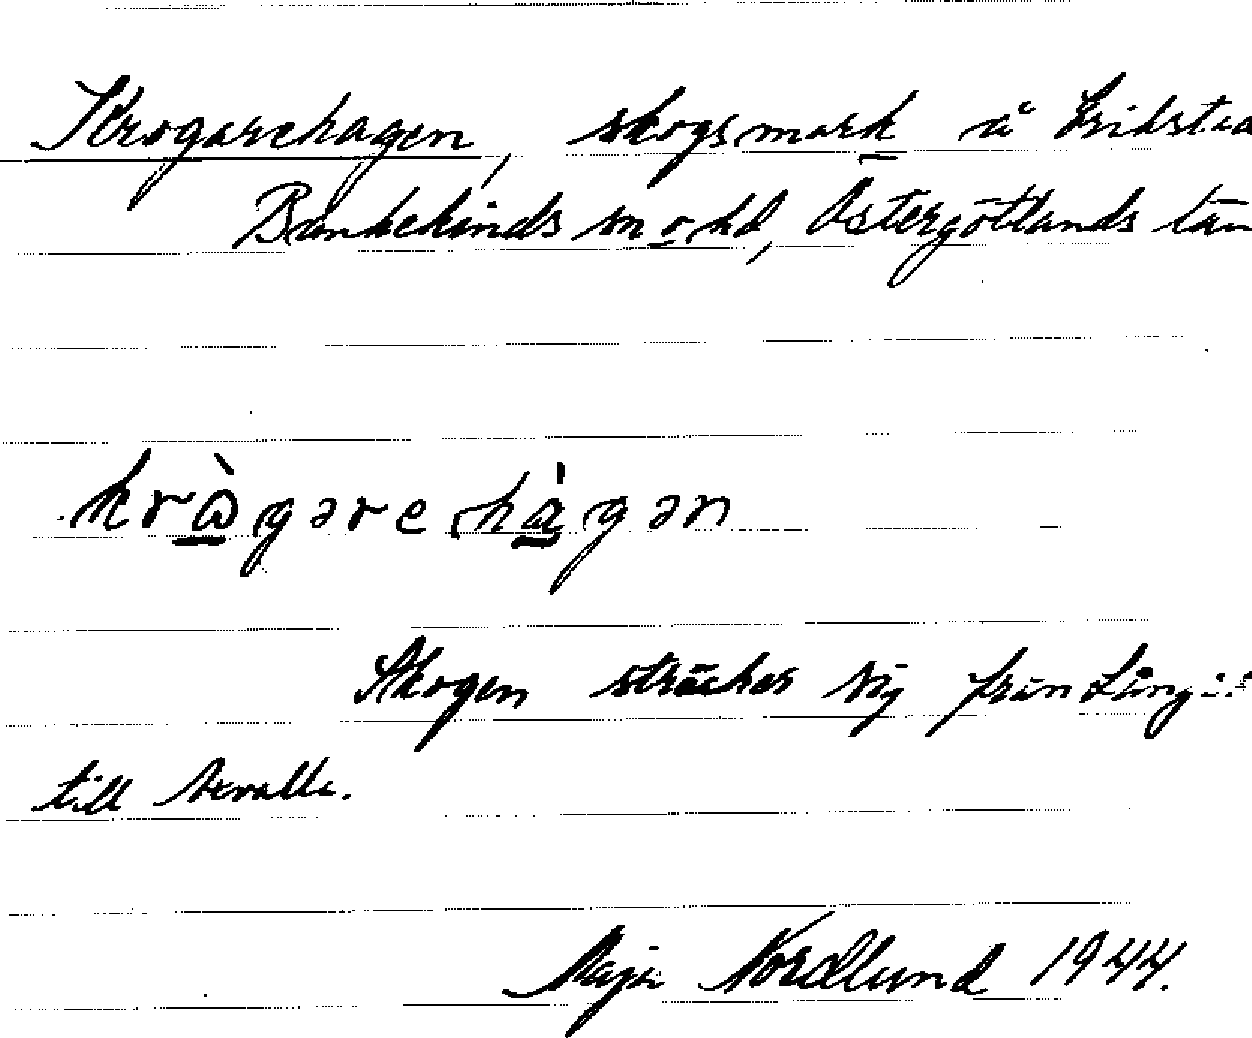 Krogarehagen, skogsmark å Fridstad
Bankekinds sn o. hd, Östergötlands län
krⱥ̀gəre hȧgən
Skogen sträcker sig från
till
Maja Nordlund 1944.